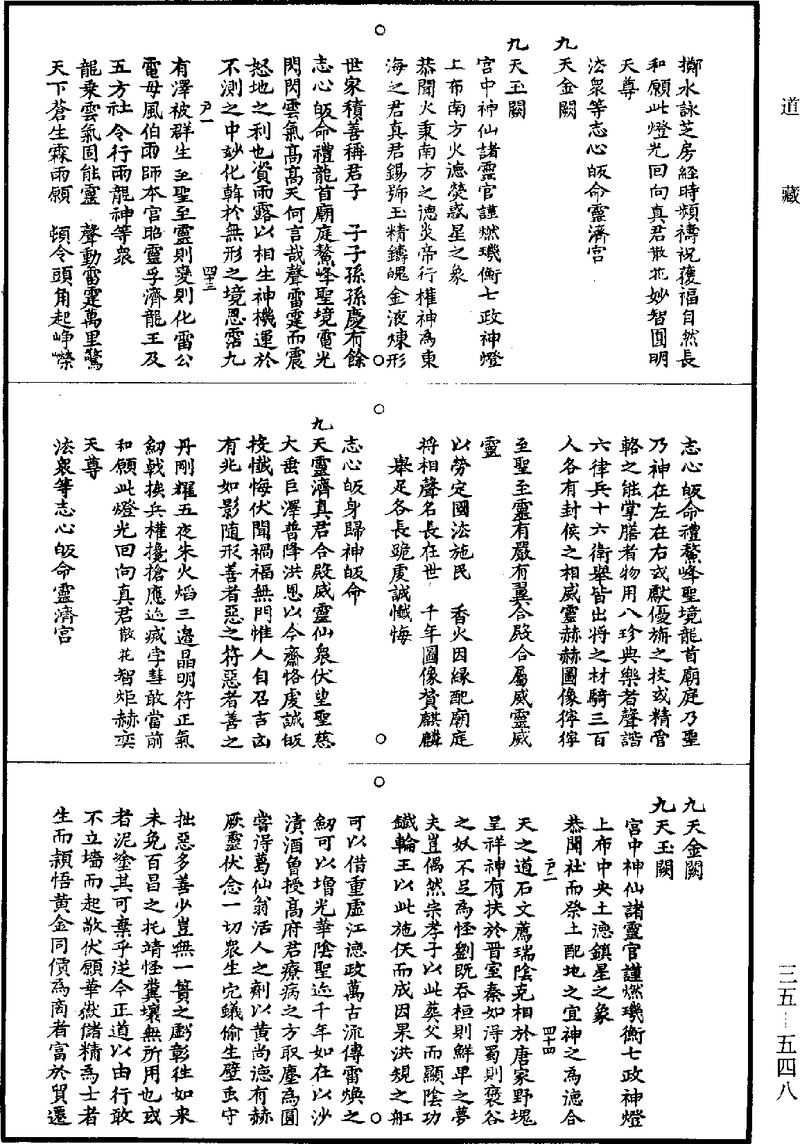 道藏
擲水詠芝房經時頻禱祝復福自然長
和願此燈光回向真君散花妙智圓明
天尊
法衆等志心皈命靈濟宮
九天金闕
九天玉闕
宮中神仙諸靈官謹燃璣衡七政神燈
上布南方火德熒惑星之象
恭聞火秉南方之德炎帝行權神為東
海之君真君錫號玉精鑄魄金液煉形
世家積善稱君子　子子孫孫慶有餘
志心皈命禮龍首廟庭鰲峰聖境電光
閃閃雲氣高高天何言哉聲雷霆而震
怒地之利也資雨露以相生神機運於
不測之中妙化斡於無形之境恩霑九
尹一
四十三
有澤被群生至聖至靈則變則化雷公
電母風伯雨師本宮昭靈孚濟龍王及
五方社令行雨龍神等衆
龍乘雲氣固能靈　聲動雷霆萬里驚
天下蒼生霖雨願　頓令頭角起崢嶸
志心皈命禮鰲峰聖境龍首廟庭乃聖
乃神在左在右或獻優旃之技或精管
輅之能掌膳者物用八珍典樂者聲諧
六律兵十六衛舉皆出將之材騎三百
人各有封侯之相威靈赫赫圖像獰獰
至聖至靈有嚴有翼合殿合屬威靈威
靈
以勞定國法施民　香火因緣配廟庭
將相聲名長在世　千年圖像贊麒麟
舉足各長跪虔誠懺悔
志心皈身歸神皈命
九天靈濟真君合殿威靈仙衆伏望聖慈
大垂巨澤普降洪恩以今齋恪虔誠皈
投懺悔伏聞禍福無門惟人自召吉凶
有兆如影隨形善者惡之符惡者善之
丹剛耀五夜朱火焰三邊晶明符正氣
劒戟挨兵權攙搶應迄滅孛彗敢當前
和願此燈光回向真君散花智炬赫奕
天尊
法衆等志心皈命靈濟宮
九天金闕
九天玉闕
宮中神仙諸靈官謹燃璣衡七政神燈
上布中央土德鎮星之象
恭聞社而祭土配地之宜神之為德合
尹二
四十四
天之道石文薦瑞陰克相於唐家野塊
呈祥神有扶於晉室秦如得蜀則褒谷
之妖不足為怪劉既吞桓則鮮卑之夢
夫豈偶然宗孝子以此葬父而顯陰功
鐵輪王以此施佛而成因果洪規之缸
可以借重虛江德政萬古流傳雷煥之
劒可以增光華陰聖迹千年如在以沙
漬酒魯授高府君療病之方取塵為圓
嘗得葛仙翁活人之劑以黃尚德有赫
厥靈伏念一切衆生穴蟻偷生壁虫守
拙惡多善少豈無一簣之虧彰往如來
未免百昌之托靖怪糞壤無所用也或
者泥塗其可棄乎迷今正道以由行敢
不立墻而起敬伏願華嶽儲精為士者
生而穎悟黃金同價為商者富於貿遷
三五─五四八